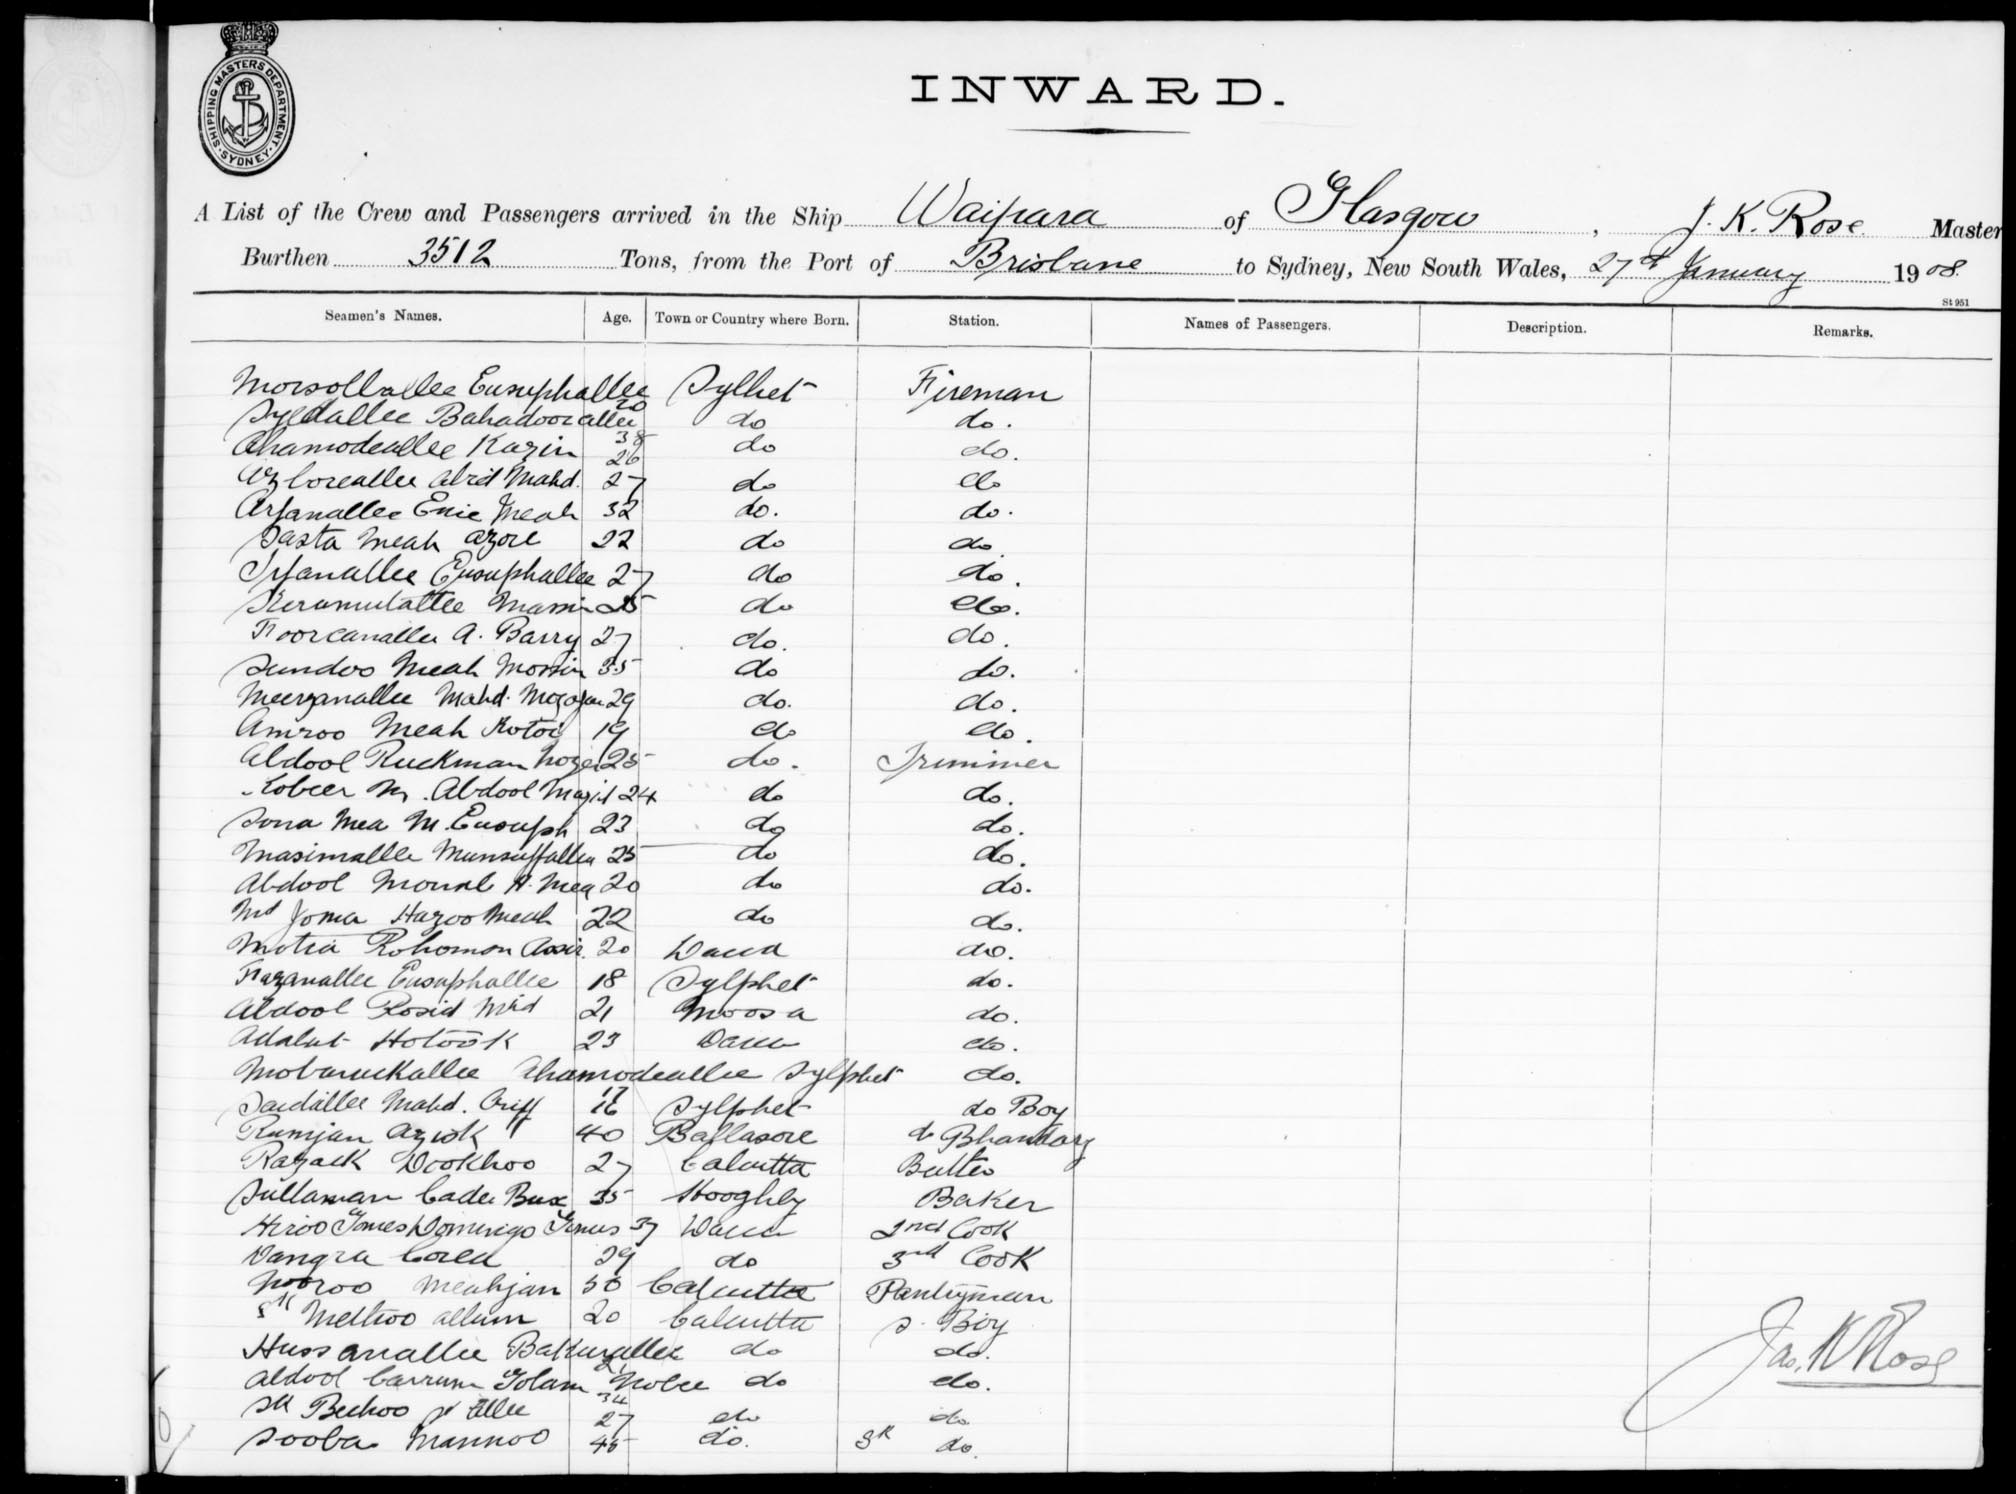 SHIPPING MASTERS DEPARTMENT. SYDNEY.
INWARD.
A List of the Crew and Passengers arrived in the Ship Waipara of Glasgow, J. K. Rose Master
Burthen 3512 Tons, from the Port of Brisbane to Sydney, New South Wales, 27th January 1908.
St 951
Seamen's Names. Age. Town or Country where Born. Station. Names of Passengers. Description. Remarks.
Eusuphallee 20 Sylhet Fireman
Syedallee Bahadoorallee 38 do do.
Ahamodeallee Kazim 26 do do.
Abid Mahd. 27 do do
Arfanallee Enie Meah 32 do. do.
Meah Azore 22 do do.
Irfanallee Eusuphallee 27 do do.
25 do do.
A. Barry 27 do. do.
Sundoo Meah Mossin 35 do do.
Meerzanallee Mahd. 29 do. do.
Amroo Meah 19 do do.
Abdool Ruckman 25 do. Trimmer
Kobeer M. Abdool Mazid 24 do do.
Sona Mea M. Eusuph 23 do do.
Masimallee Munsuffallee 25 do do.
Abdool A. Mea 20 do do.
Md Joma Hazoo Meah 22 do do.
Motia Rohomon 20 Dacca do.
Fazanallee Eusuphallee 18 Sylphet do.
Abdool Rosid Md 21 Moosa do.
Adalut 23 Dacca do.
Mobaruckallee Ahamodeallee 17 Sylphet do.
Saidallee Mahd. Ariff 16 Sylphet do Boy
Rumjan 40 Ballasore do Bhandary
Razack Dookhoo 27 Calcutta Butler
Sullaman Cader Bux 35 Hooghly Baker
Gomes Domingo 37 Dacca 2nd Cook
Dangra Corea 29 do 3rd Cook
Nooroo Meahjan 50 Calcutta Pantryman
Sk Allum 20 Calcutta S. Boy
Hussanallee Bakurallee 21 do do.
Abdool Carrum Golam Nobee 34 do do.
Sk 27 do do
Sooba Mannoo 45 do. do.
Jas. K Rose